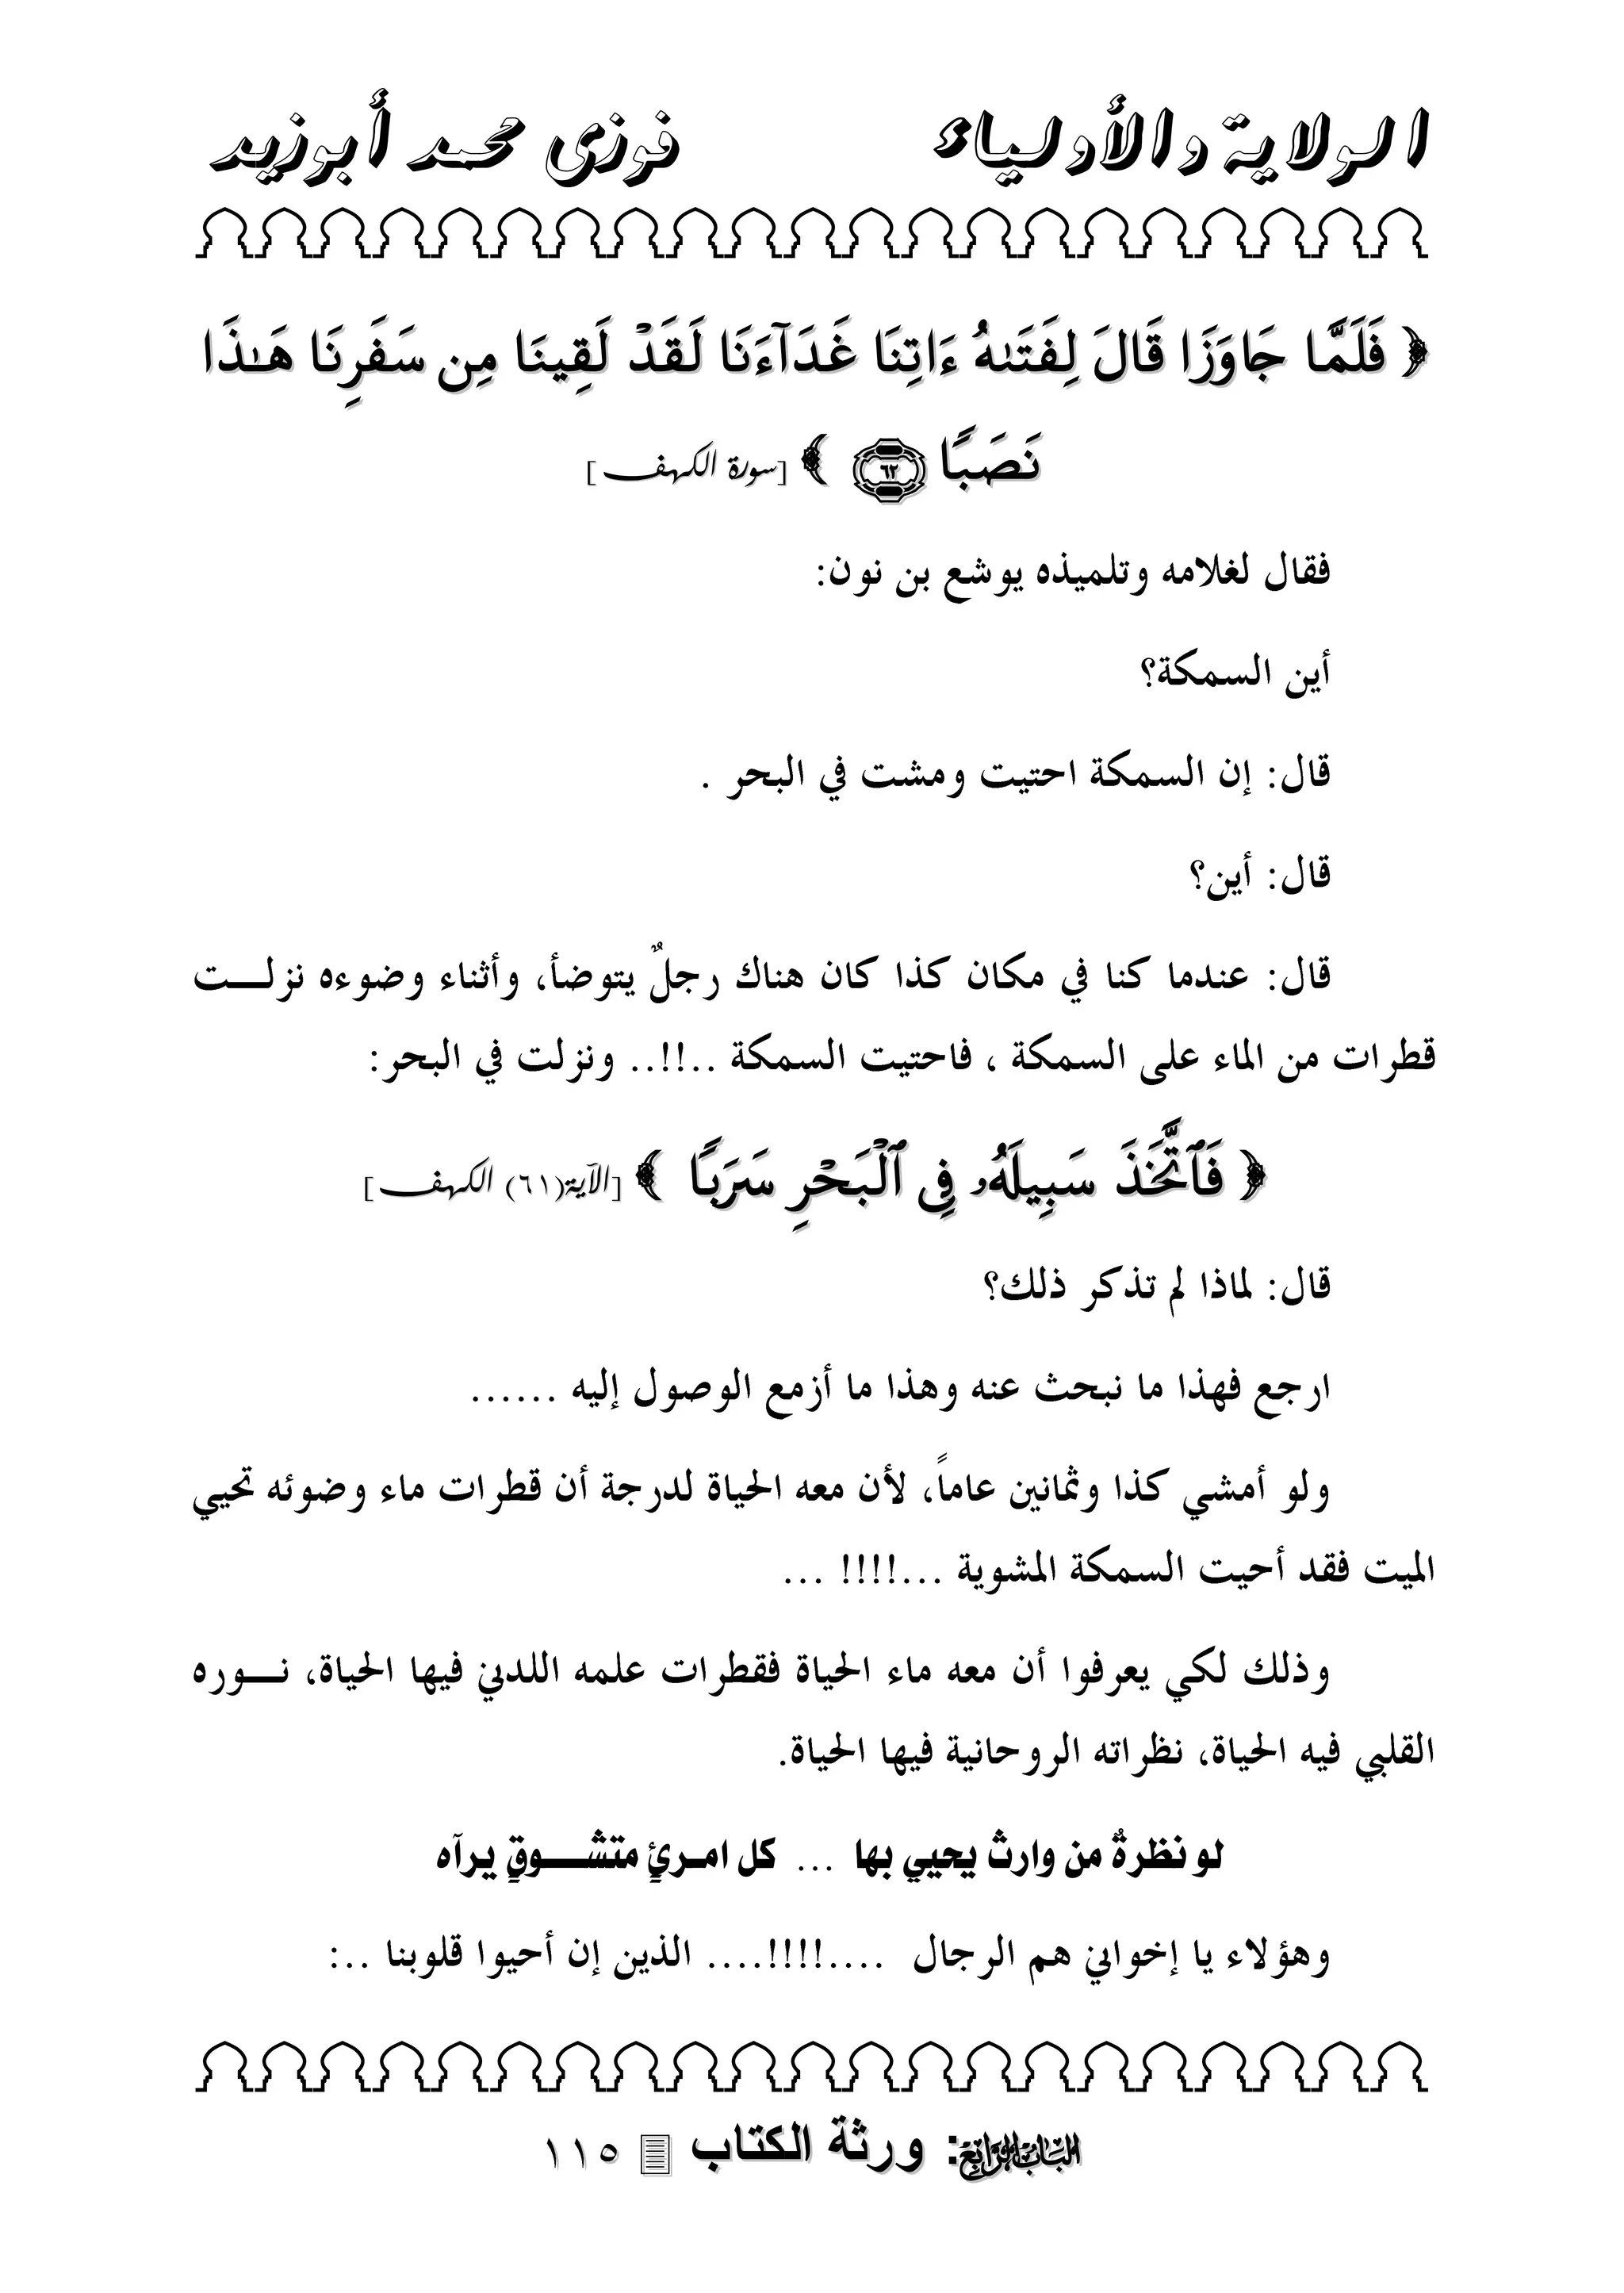 الولاية والأولياء فوزى محمد أبوزيد
﴿ فَلَمَّا جَاوَزَا قَالَ لِفَتَىٰهُ ءَاتِنَا غَدَآءَنَا لَقَدْ لَقِينَا مِن سَفَرِنَا هَـٰذَا
نَصَبًا ٦٢ ﴾ [سورة الكهف]
فقال لغلامه وتلميذه يوشع بن نون:
أين السمكة؟
قال: إن السمكة احتيت ومشت في البحر .
قال: أين؟
قال: عندما كنا في مكان كذا كان هناك رجلٌ يتوضأ، وأثناء وضوءه نزلـــت
قطرات من الماء على السمكة ، فاحتيت السمكة ..!!.. ونزلت في البحر:
﴿ فَٱتَّخَذَ سَبِيلَهُۥ فِى ٱلْبَحْرِ سَرَبًا ﴾ [الآية(٦١) الكهف]
قال: لماذا لم تذكر ذلك؟
ارجع فهذا ما نبحث عنه وهذا ما أزمع الوصول إليه ......
ولو أمشي كذا وثمانين عاماً، لأن معه الحياة لدرجة أن قطرات ماء وضوئه تحيي
الميت فقد أحيت السمكة المشوية ...!!!! ...
وذلك لكي يعرفوا أن معه ماء الحياة فقطرات علمه اللدني فيها الحياة، نـــوره
القلبي فيه الحياة، نظراته الروحانية فيها الحياة.
لو نظرةٌ من وارث يحيي بها ... كل امـرئٍ متشـــوقٍ يـرآه
وهؤلاء يا إخواني هم الرجال ....!!!!.... الذين إن أحيوا قلوبنا ..:
الباب الرابع: ورثة الكتاب ١١٥